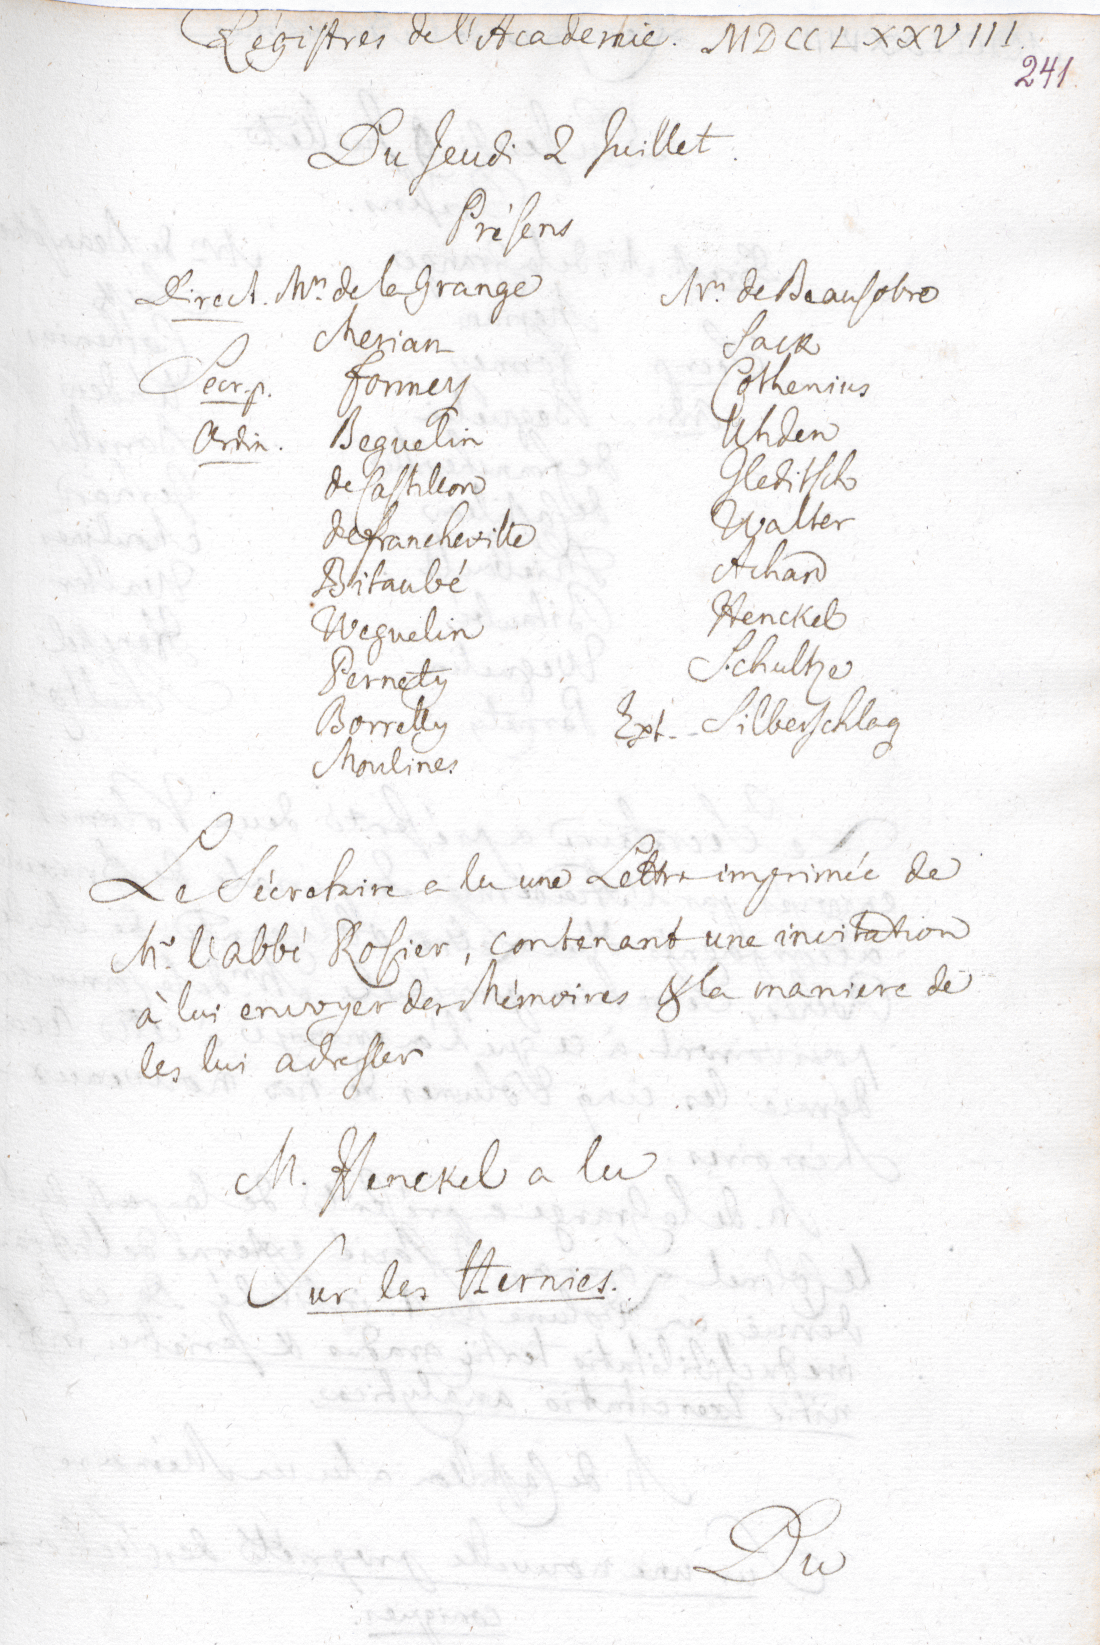 Régistres de l'Academie. MDCCLXXVIII.
241
Du Jeudi 2 Juillet.
Présens
Direct. Mrs de la Grange
Merian
Secr. p. Formey
Ordin. Beguelin
de Castillon
de Francheville
Bitaubé
Weguelin
Pernety
Borrelly
Moulines
Mrs de Beausobre
Sack
Cothenius
Uhden
Gleditsch
Walter
Achard
Henckel
Schultze
Ext. Silberschlag
Le Sécretaire a lu une Lettre imprimée de
Mr. l'abbé Rosier, contenant une invitation
à lui envoyer des Mémoires & la maniere de
les lui adresser
M. Henckel a lu
Sur les Hernies.
Du